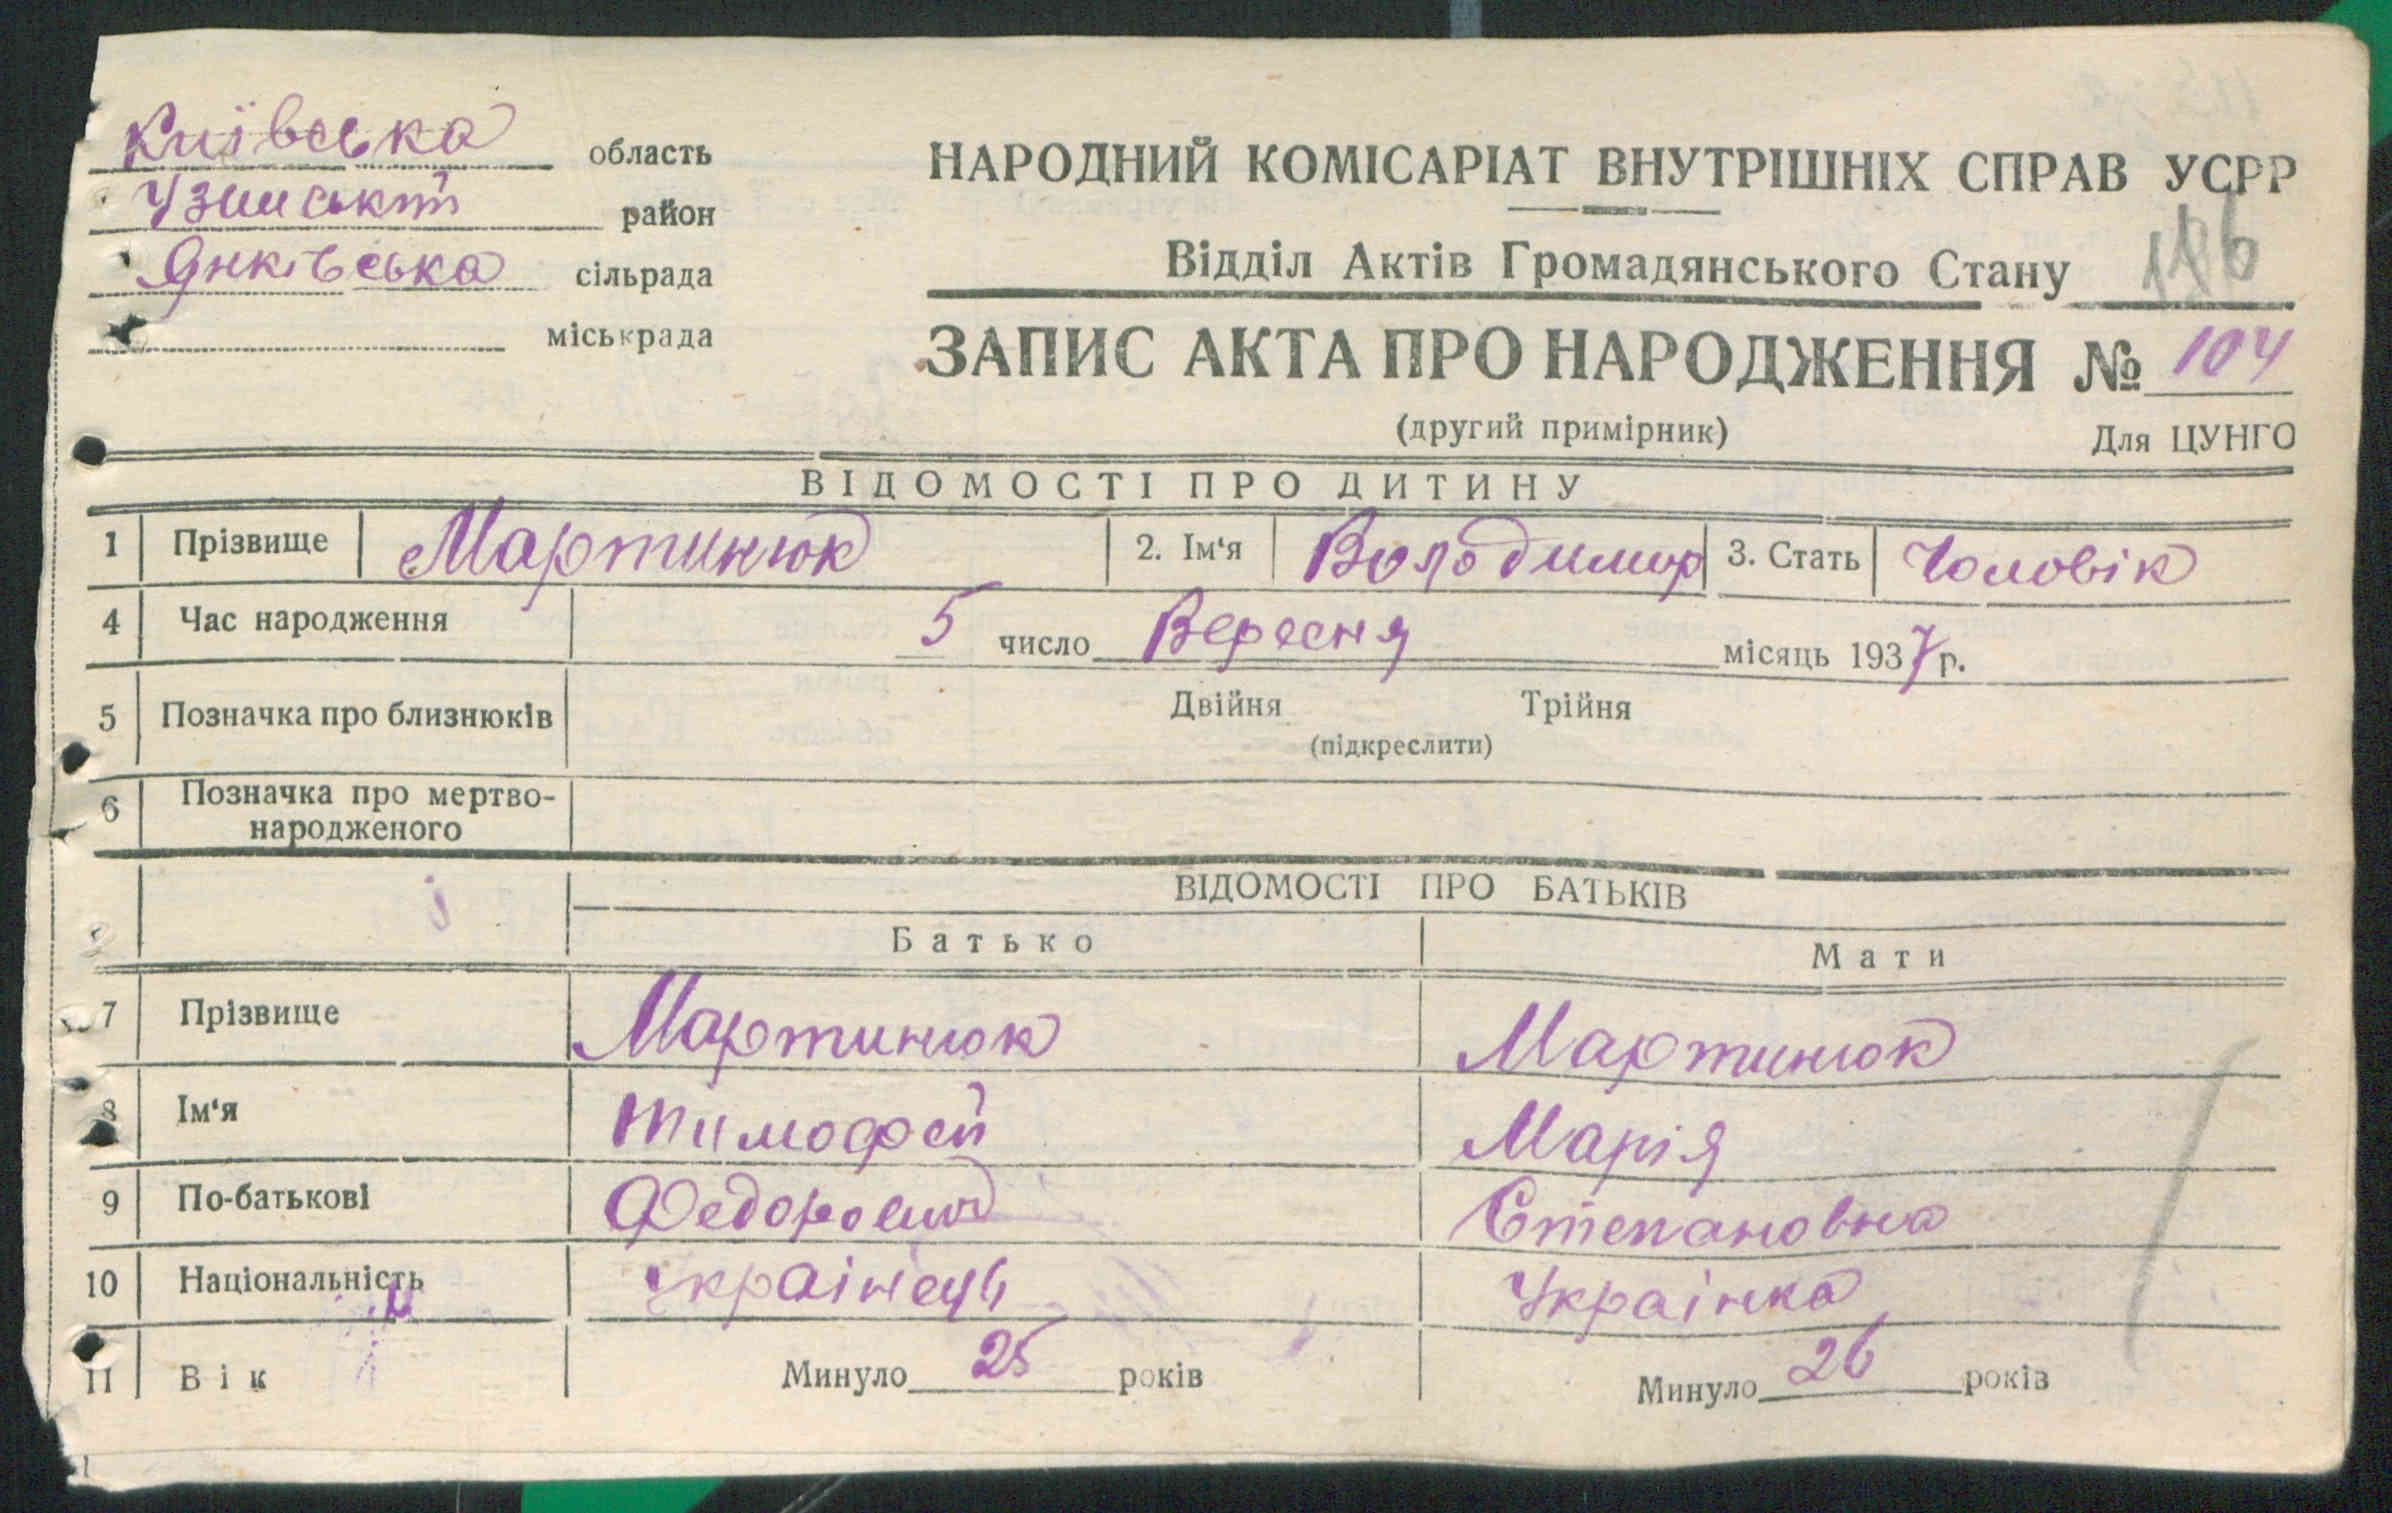 Київська область
Узинський район
Янківська сільрада
міськрада
НАРОДНИЙ КОМІСАРІАТ ВНУТРІШНІХ СПРАВ УСРР
Відділ Актів Громадянського Стану
ЗАПИС АКТА ПРО НАРОДЖЕННЯ № 104
(другий примірник) Для ЦУНГО
ВІДОМОСТІ ПРО ДИТИНУ
1 Прізвище Мартинюк 2. Ім'я Володимир 3. Стать Чоловік
4 Час народження 5 число Вересня місяць 1937 р.
5 Позначка про близнюків Двійня Трійня
(підкреслити)
6 Позначка про мертво-
народженого
ВІДОМОСТІ ПРО БАТЬКІВ
Батько Мати
7 Прізвище Мартинюк Мартинюк
8 Ім'я Тимофей Марія
9 По-батькові Федорович Степановна
10 Національність Українець Українка
11 Вік Минуло 25 років Минуло 26 років